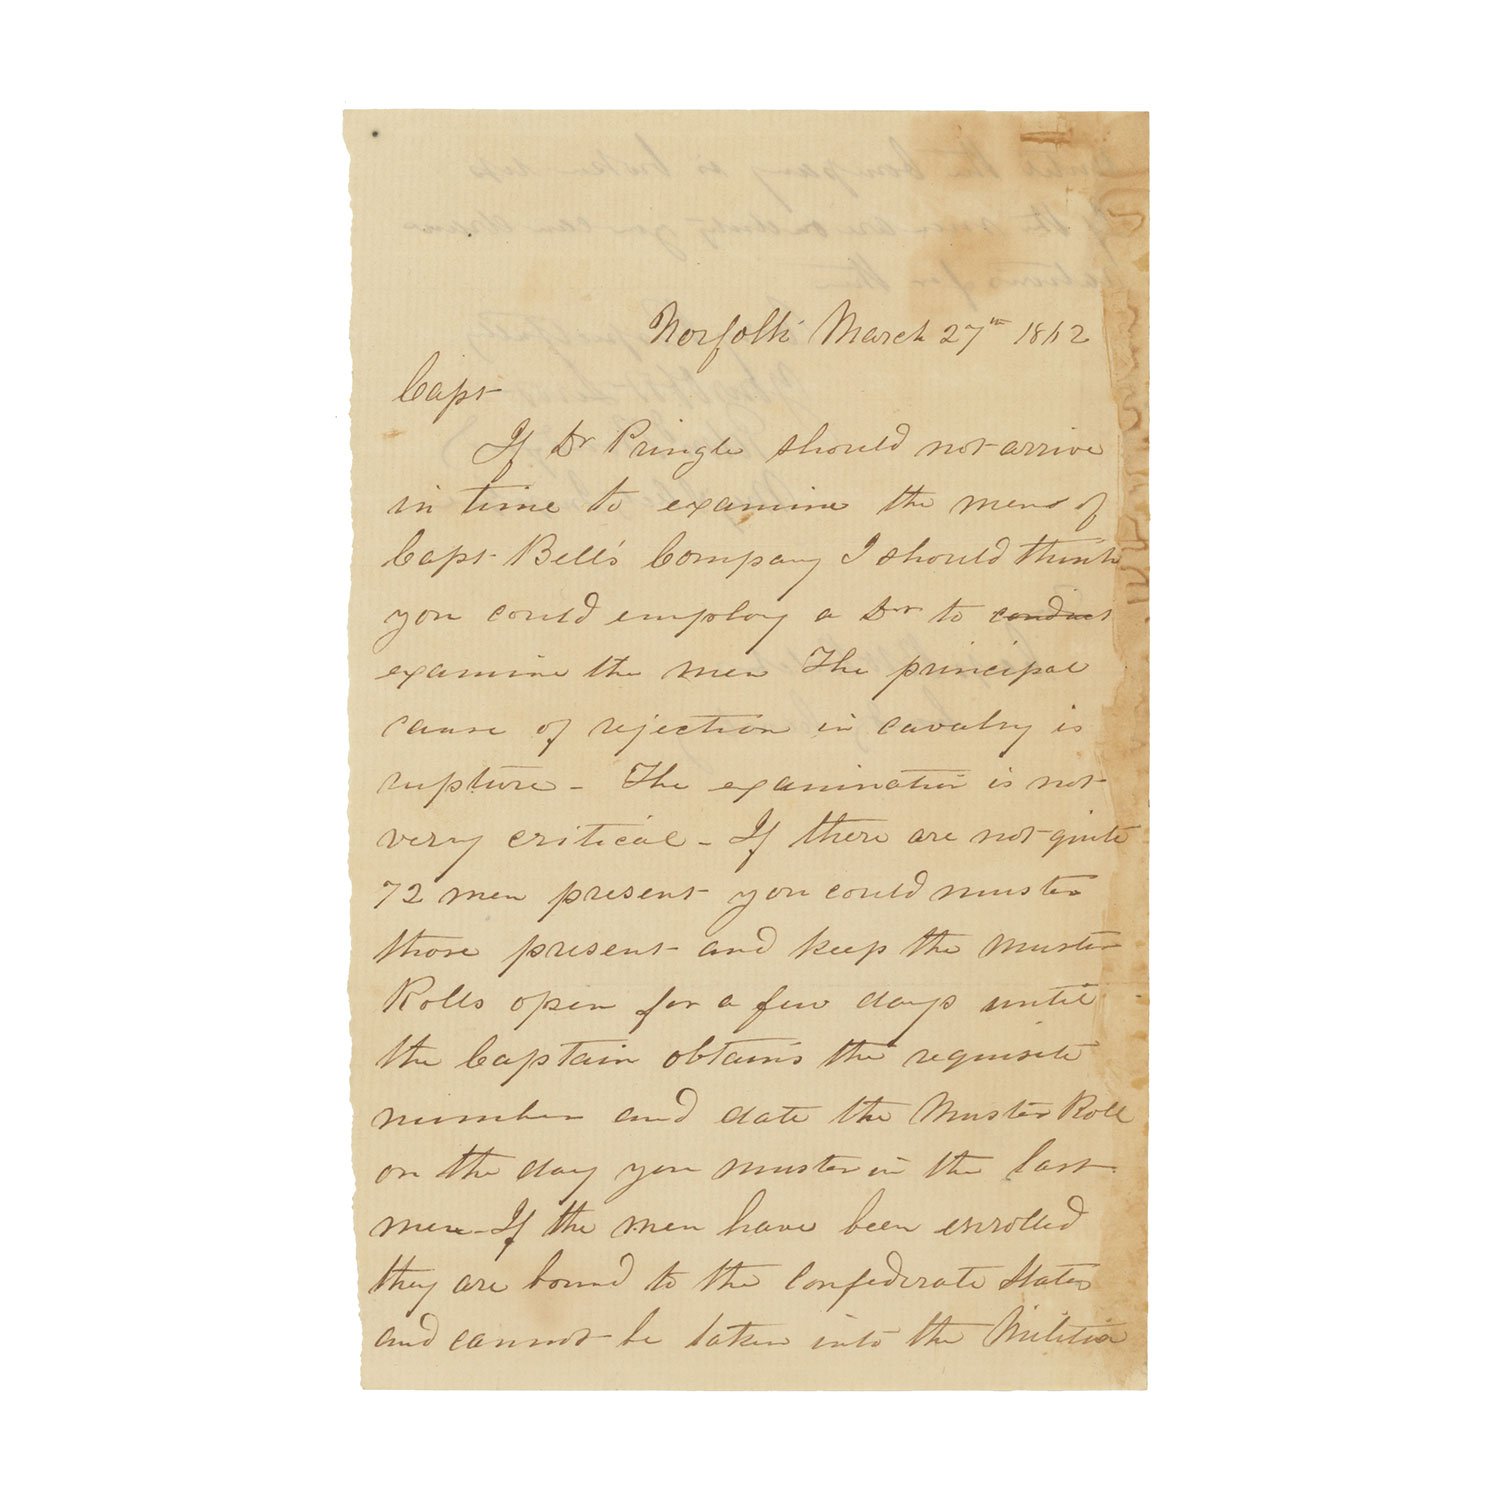 Norfolk March 27th 1862
Capt
If Dr Pringle should not arrive
in time to examine the men of
Capt Bell's Company I should think
you could employ a Dr to conduct
examine the men The principal
cause of rejection in cavalry is
rupture - The examination is not
very critical - If there are not quite
72 men present you could muster
those present and keep the Muster
Rolls open for a few days until
the Captain obtains the requisite
number and date the Muster Roll
on the day you muster in the last
men - If the men have been enrolled
they are bound to the Confederate States
and cannot be taken into the Militia